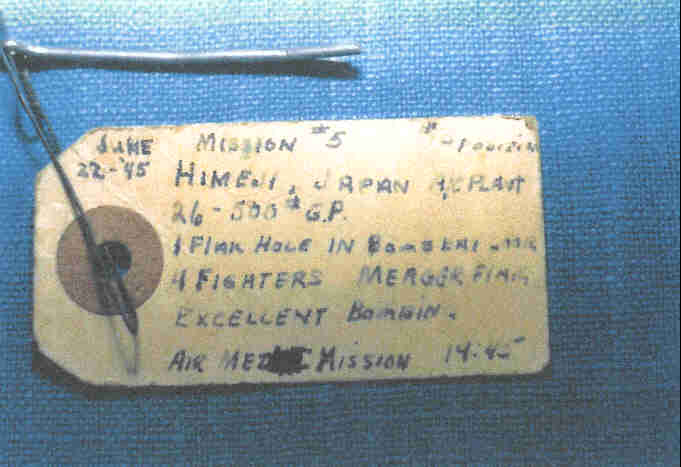 JUNE
22-'45
MISSION #5
HIMEJI, JAPAN A/C PLANT
26-500# G.P.
1 FLAK HOLE IN BOMBBAY
4 FIGHTERS MEAGER FLAK
EXCELLENT BOMBIN.
AIR MEDAL MISSION 14:45